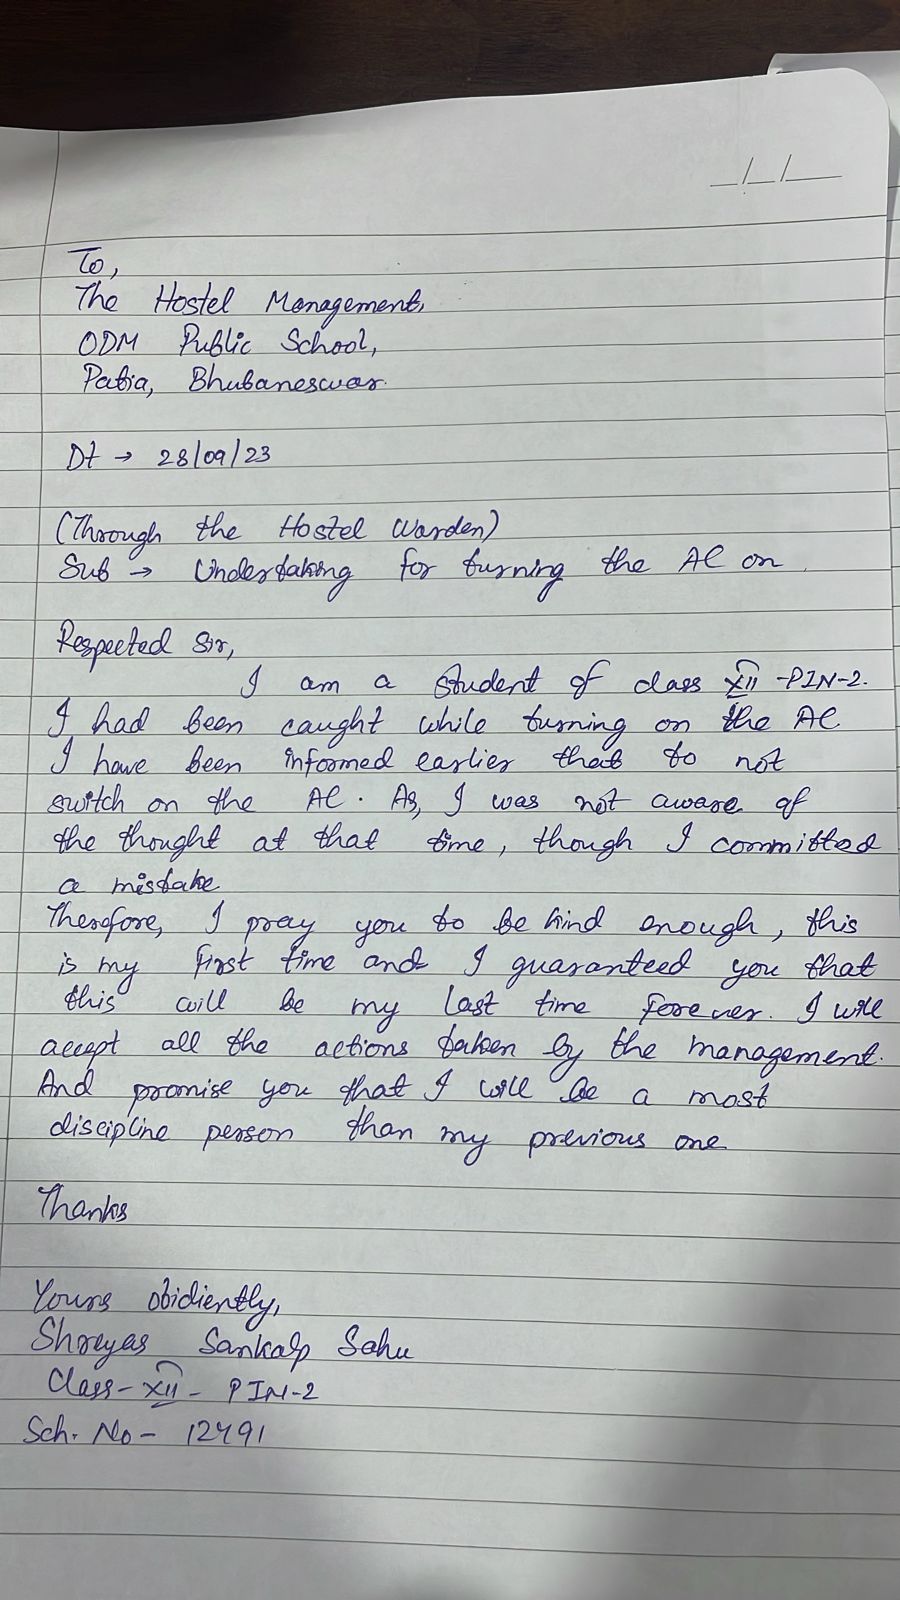 To,
The Hostel Management,
ODM Public School,
Patia, Bhubaneswar.
Dt → 28/09/23
(Through the Hostel Warden)
Sub → Undertaking for turning the AC on.
Respected Sir,
I am a student of class XII -PIN-2.
I had been caught while turning on the AC.
I have been informed earlier that to not
switch on the AC. As, I was not aware of
the thought at that time, though I committed
a mistake
Therefore, I pray you to be kind enough, this
is my first time and I guaranteed you that
this will be my last time forever. I will
accept all the actions taken by the management.
And promise you that I will be a most
discipline person than my previous one
Thanks
Yours obidiently,
Shreyas Sankalp Sahu
Class-XII- PIN-2
Sch. No- 12491